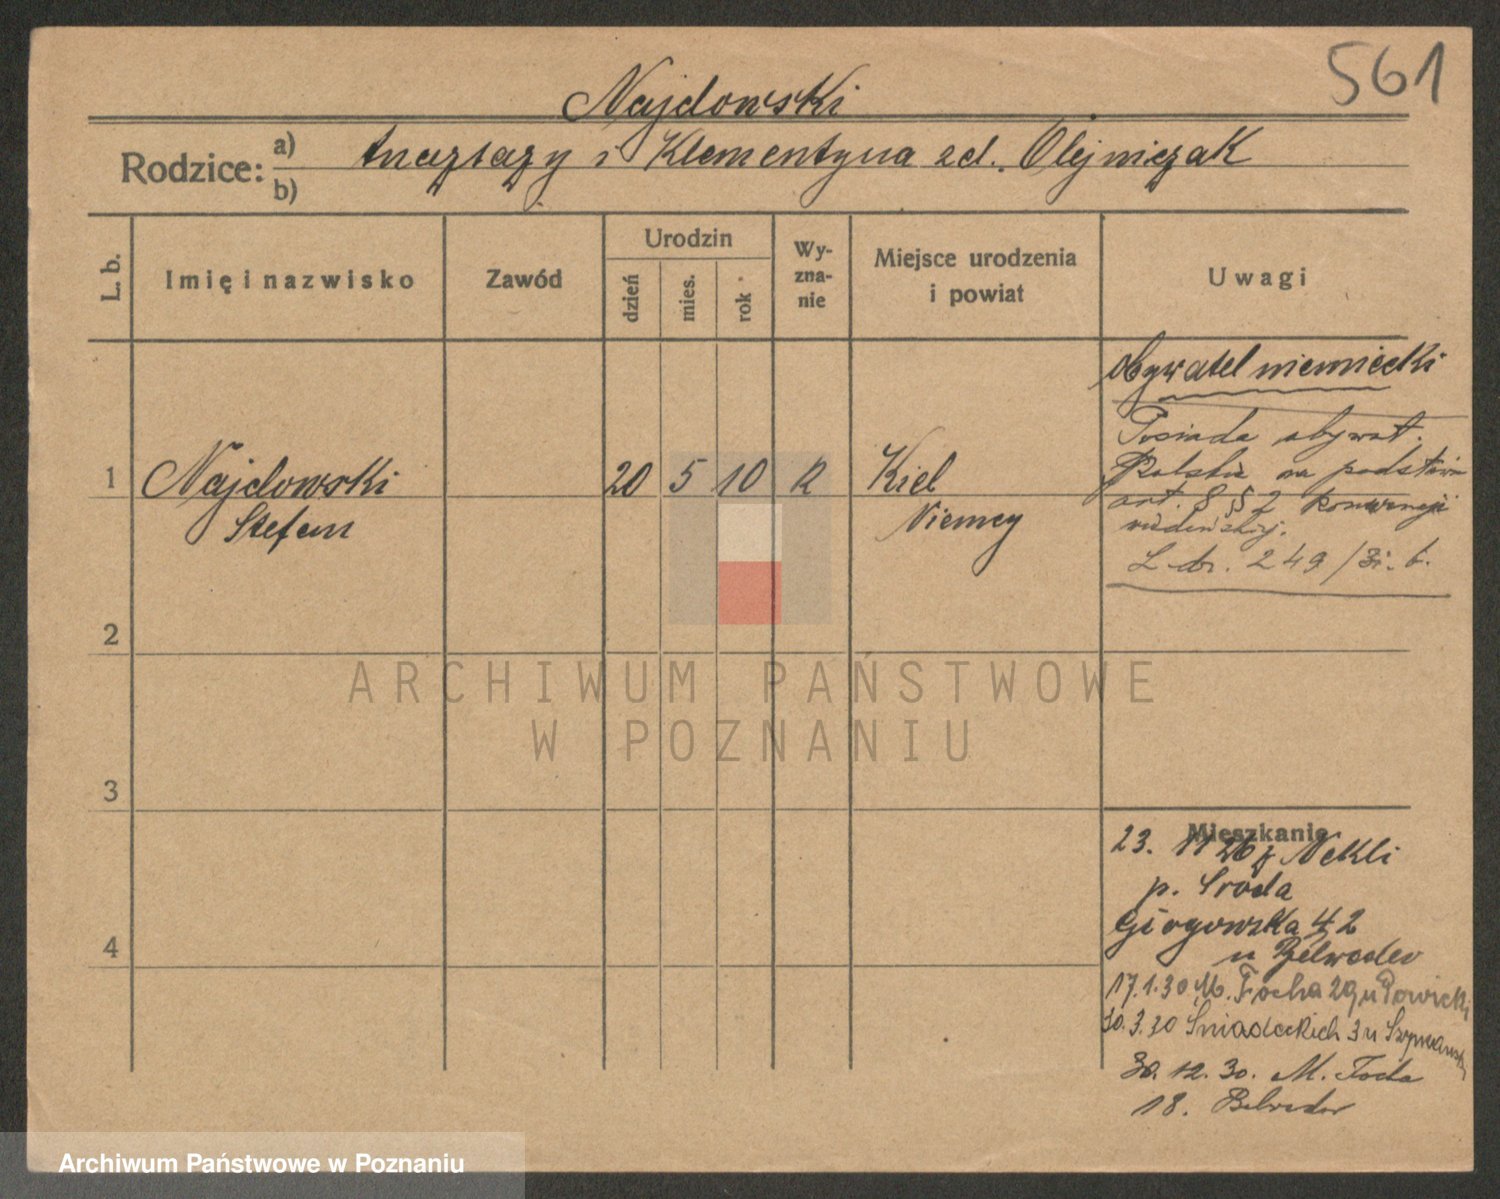 561
Najdowski
Rodzice: a) Anaztazy i Klementyna zd. Olejniczak
b)
L. b.
Imię i nazwisko
Zawód
Urodzin
dzień
mies.
rok
Wy-
zna-
nie
Miejsce urodzenia
i powiat
Uwagi
obywatel niemiecki
Posiada obywat.
Polskie na podstawie
art. 8 § 2 konwencji
wiedeńskiej.
L. dz. 249/31. 6.
1 Najdowski 20 5 10 R Kiel
Stefan Niemcy
2
3
4
Mieszkanie
23. 11 26 z Nekli
p. Sroda
Górgowska 42
u Belweder
17.1.30 M. Focha 29 u Powicki
30.3.30 Śniadeckich 3 u Szymańsk
30. 12. 30. M. Focha
18. Belweder
ARCHIWUM PAŃSTWOWE
W POZNANIU
Archiwum Państwowe w Poznaniu